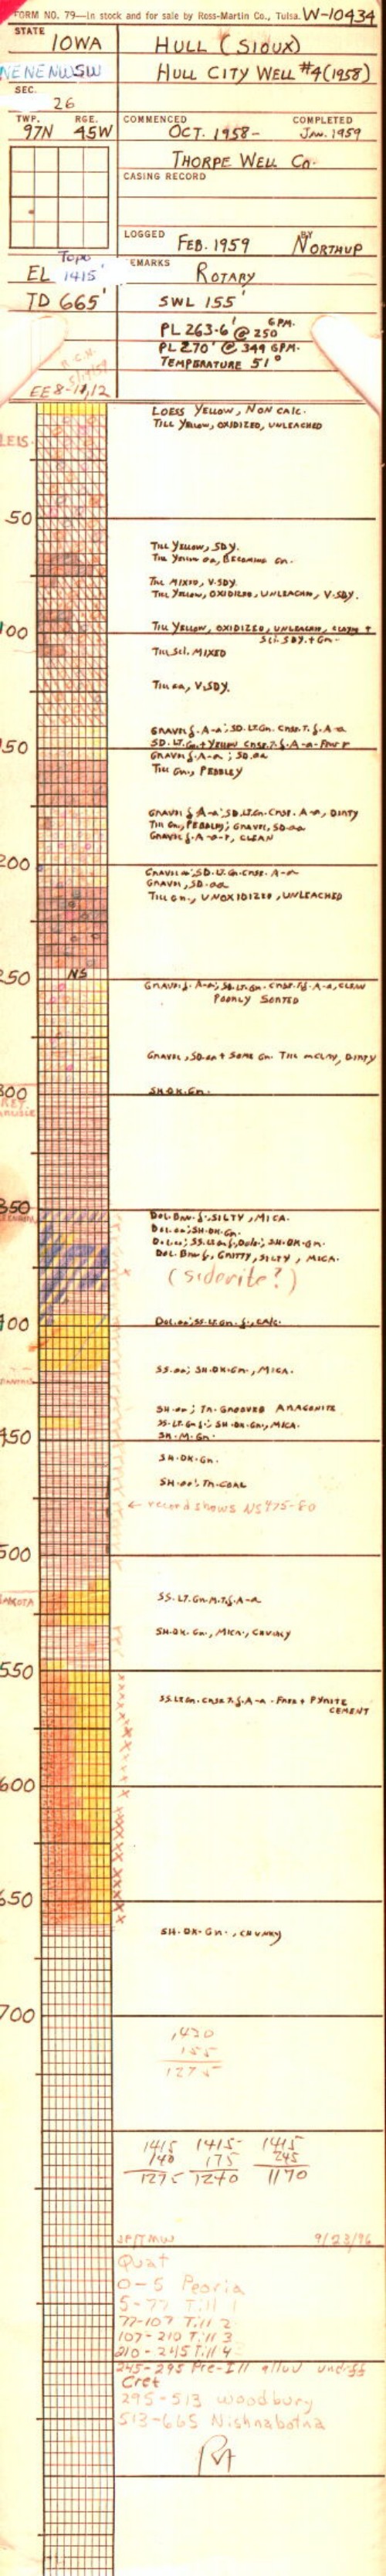 FORM NO. 79—In stock and for sale by Ross-Martin Co., Tulsa. W-10434
STATE
IOWA
HULL (SIOUX)
NENENWSW
HULL CITY WELL #4(1958)
SEC.
26
TWP. RGE.
97N 45W
COMMENCED COMPLETED
OCT. 1958- JAN. 1959
THORPE WELL Co.
CASING RECORD
LOGGED BY
FEB. 1959 NORTHUP
Topo
EL 1415'
EMARKS
ROTARY
TD 665'
SWL 155'
PL 263-6' @ 250 GPM.
PL 270' @ 349 GPM.
TEMPERATURE 51°
EE 8-11,12
LOESS YELLOW, NON CALC.
TILL YELLOW, OXIDIZED, UNLEACHED
50
TILL YELLOW, SDY.
TILL YELLOW oa, BECOMING Gn.
TILL MIXED, V.SDY.
TILL YELLOW, OXIDIZED, UNLEACHED, V.SDY.
00
TILL YELLOW, OXIDIZED, UNLEACHED, CLAYEY +
SLI. SDY. + Gn.
TILL SLI. MIXED
TILL aa, V.SDY.
GRAVEL f. A-a; SD. LT.Gn. CRSE.T.f. A-a
50
SD. LT. Gn. + YELLOW CRSE.T.f. A-a-
GRAVEL f. A-a; SD. aa
TILL Gn., PEBBLEY
GRAVEL f A-a; SD. LT.Gn. CRSE. A-a, DIRTY
TILL Gn., PEBBLEY; GRAVEL, SD. aa
GRAVEL f. A-a-r, CLEAN
200
GRAVEL aa; SD. LT. Gn. CRSE. A-a
GRAVEL, SD. aa
TILL Gn., UNOXIDIZED, UNLEACHED
250
NS
GRAVEL f. A-a; SD. LT. Gn. CRSE. T.f. A-a, CLEAN
POORLY SORTED
GRAVEL, SD. aa + SOME Gn. TILL CLAY, DIRTY
300
SH. DK. Gn.
350
DOL. BRN. f., SILTY, MICA.
DOL. aa; SH. DK. Gn.
DOL. aa; SS. LT. Gn. f., DOL.; SH. DK. Gn.
DOL. BRN. f., GRITTY, SILTY, MICA.
(siderite?)
400
DOL. aa; SS. LT. Gn. f., CALC.
SS. aa; SH. DK. Gn., MICA.
SH. aa; TR. GROOVED ARAGONITE
SS. LT. Gn. f.; SH. DK. Gn., MICA.
450
SH. M. Gn.
SH. DK. Gn.
SH. aa; TR. COAL
← record shows NS 475-80
500
SS. LT. Gn. M.T.f. A-a
SH. DK. Gn., MICA, CHUNKY
550
SS. LT. Gn. CRSE T. f. A-a - FREE + PYRITE
CEMENT
600
650
SH. DK. Gn., CHUNKY
700
1,430
155
1275
1415 1415- 1415
140 175 245
1275 1240 1170
9/23/96
Quat
0-5 Peoria
5-77 Till 1
77-107 Till 2
107-210 Till 3
210-245 Till 4
245-295 Pre-Ill alluv undiff
Cret
295-513 Woodbury
513-665 Nishnabotna